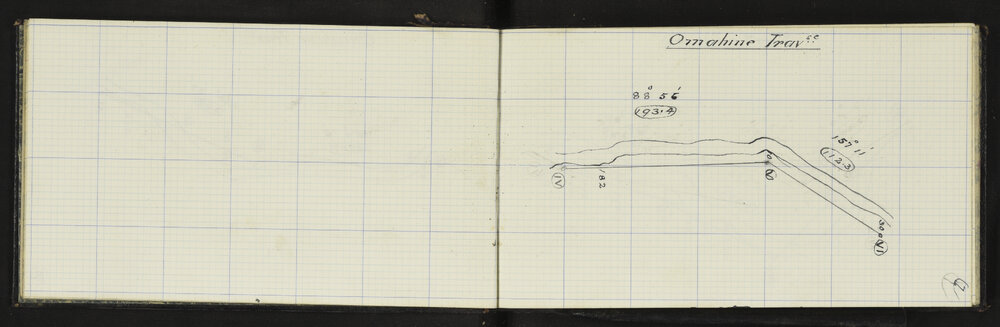 Omahine Trav.se
88° 56'
193.4
157° 11'
172.3
IV
182
V
30
VI